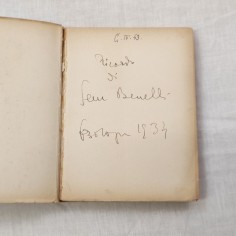 Ricordo
di
Sem Benelli
Bologna 1934